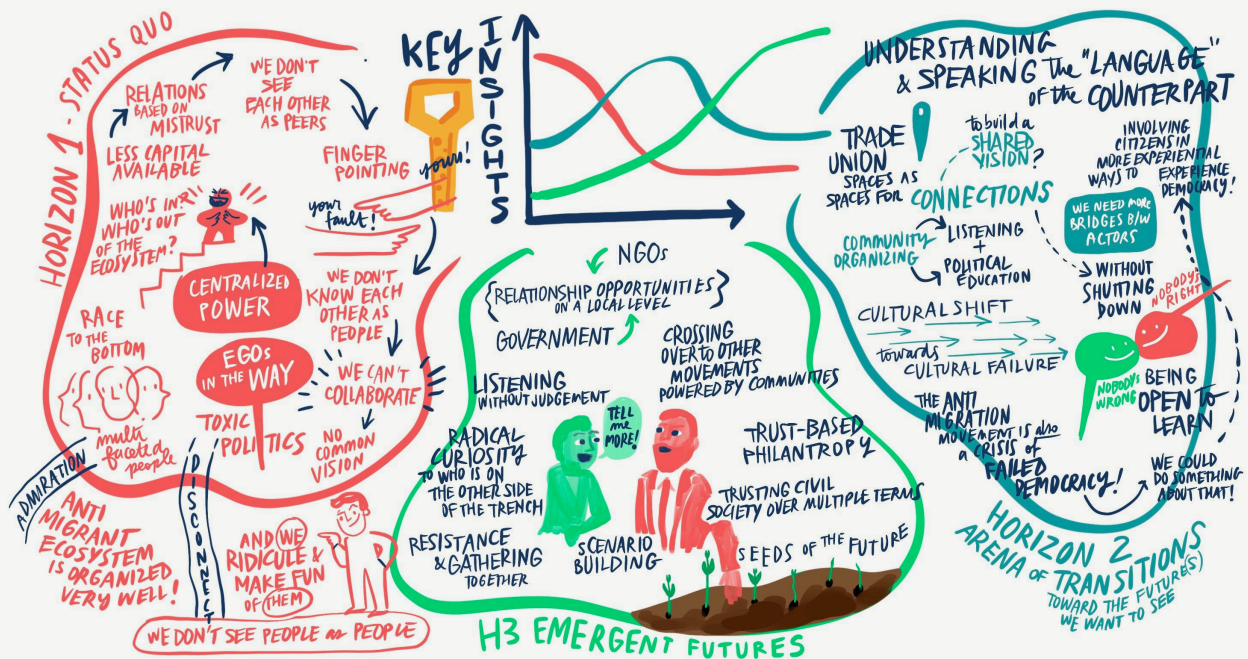 HORIZON 1 - STATUS QUO
RELATIONS
BASED ON
MISTRUST
LESS CAPITAL
AVAILABLE
WE DON'T
SEE
EACH OTHER
AS PEERS
FINGER
POINTING
yours!
your
fault!
WHO'S IN?
WHO'S OUT
OF THE
ECOSYSTEM?
CENTRALIZED
POWER
WE DON'T
KNOW EACH
OTHER AS
PEOPLE
RACE
TO THE
BOTTOM
multi
faceted
people
EGOs
IN THE WAY
WE CAN'T
COLLABORATE
TOXIC
POLITICS
NO
COMMON
VISION
ADMIRATION
DISCONNECT
ANTI
MIGRANT
ECOSYSTEM
IS ORGANIZED
VERY WELL!
AND WE
RIDICULE &
MAKE FUN
OF THEM
WE DON'T SEE PEOPLE as PEOPLE
KEY
INSIGHTS
NGOs
{RELATIONSHIP OPPORTUNITIES
ON A LOCAL LEVEL}
GOVERNMENT
CROSSING
OVER to OTHER
MOVEMENTS
POWERED BY COMMUNITIES
LISTENING
WITHOUT JUDGEMENT
TELL
me
MORE!
RADICAL
CURIOSITY
TO WHO IS ON
THE OTHER SIDE
OF THE TRENCH
TRUST-BASED
PHILANTROPY
TRUSTING CIVIL
SOCIETY OVER MULTIPLE TERMS
RESISTANCE
& GATHERING
TOGETHER
SCENARIO
BUILDING
SEEDS OF THE FUTURE
H3 EMERGENT FUTURES
UNDERSTANDING
& SPEAKING the "LANGUAGE"
of the COUNTERPART
TRADE
UNION
SPACES AS
SPACES FOR
CONNECTIONS
to build a
SHARED
VISION?
INVOLVING
CITIZENS IN
MORE EXPERIENTIAL
WAYS TO EXPERIENCE
DEMOCRACY!
WE NEED MORE
BRIDGES B/W
ACTORS
COMMUNITY
ORGANIZING
LISTENING
+
POLITICAL
EDUCATION
WITHOUT
SHUTTING
DOWN
NOBODY'S
RIGHT
CULTURAL SHIFT
towards
CULTURAL FAILURE
NOBODY'S
WRONG
BEING
OPEN TO
LEARN
THE ANTI
MIGRATION
MOVEMENT IS also
a CRISIS of
FAILED
DEMOCRACY!
WE COULD
DO SOMETHING
ABOUT THAT!
HORIZON 2
ARENA OF TRANSITIONS
TOWARD THE FUTURE(S)
WE WANT TO SEE